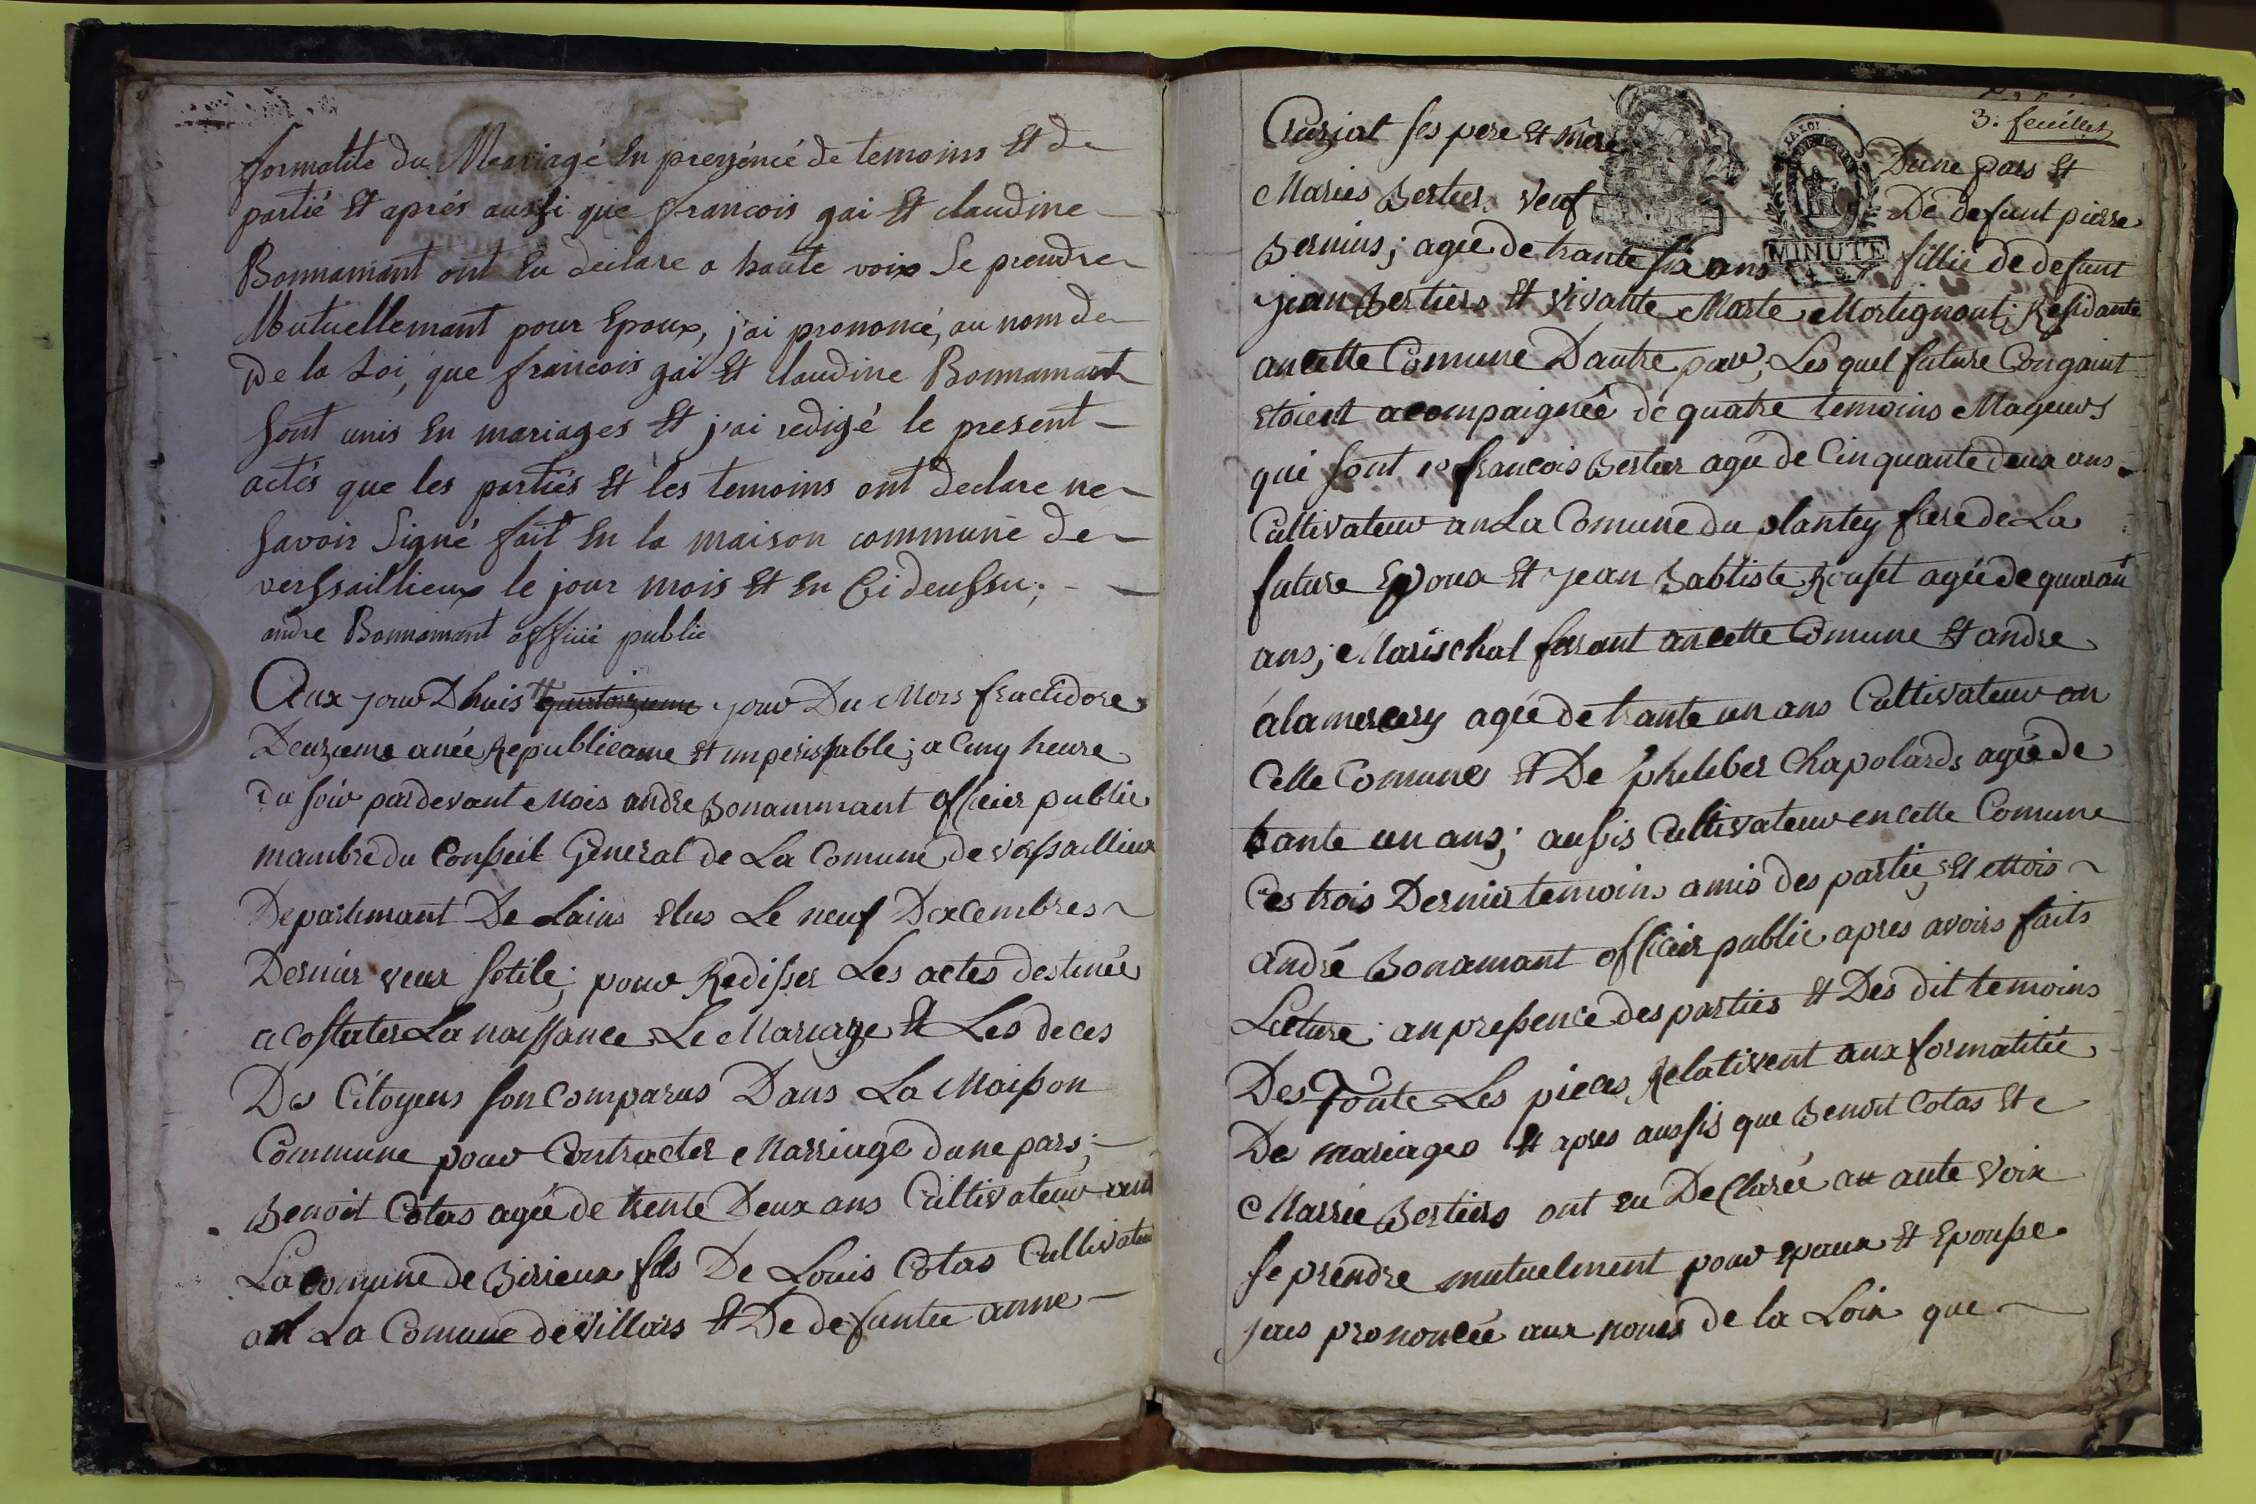 formalité du Mariagé En prezéncé de temoins Et de
partié Et aprés aussi que francois gai Et claudine
Bonnamant ont Eu declare a haute voix Se prendre
Mutuellemant pour Epoux, j'ai prononcé, au nom de
De la Loi, que francois gai Et claudine Bonnamant
sont unis En mariages Et j'ai redigé le present
actés que les partiés Et les temoins ont declare ne
savoir Signé fait En la maison communé dé
versaillieux le jour mois Et En Ci deussu;
andre Bonnamant officié public
Aux jour Dhuis quatorzieme jour Du Mois fructidore
Deuzieme anée Republicaine Et imperissable; a Cinq heure
Du soir pardevant Mois andre Bonammant officier public
mambre du Conseil Géneral de La Comune de Versaillieux
Departemant De Lains Elus Le neuf Dexembres
Dernier vieux stile; pour Redisser Les actes destinée
a costater La naissance Le Mariage Et Les deces
Des Citoyens son Comparus Dans La Maison
Commune pour Contracter Marriage dune pars;
Benoit Cotas agée de trente Deux ans Cultivateur
La comune de Birieux fils De Louis Cotas Cultivateur
an La Comune de Villars Et De defuntee anne
3. feuillet
Cruziat ses pere Et mere Dune pars Et
Maries Bertier veuf De defunt pierre
MINUTE
Bernins; agée de trante six ans fillie de defunt
jean Bertiers Et vivante Marte Mortignont; Residante
an cette Comune Dautre par, Les quel future Congoint
Etoient acompaignée de quatre temoins Mageurs
qui sont 1º francois Bertier agée de Cinquante deux ans
Cultivateur an La Comune du plantey frere de La
future Epoux Et jean Babtiste Rouset agée de quaran
ans; Marischal ferrant an cette Comune Et andre
alamercery agée de trante un ans Cultivateur an
Cette Comune Et De philiber Chapolards agée de
trante un ans; aussis Cultivateur en cette Comune
Ces trois Dernier temoins amis des partie, Et Mois
andré Bonamant officier public apres avoirs faits
Lecture; an pressence des parties Et Des dit temoins
Des Toute Les pieces Relativent aux formatitée
De mariages Et apres aussis que Benoit Cotas Et
Marrie Bertiers ont Eu Declarée au aute voix
se prendre mutuelment pour epoux Et Epousse
jais prononcée aux noms de la Loix que